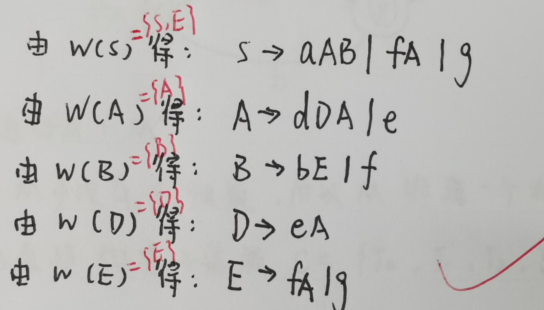 由 W(S)={S,E} 得: S → aAB | fA | g
由 W(A)={A} 得: A → dDA | e
由 W(B)={B} 得: B → bE | f
由 W(D)={D} 得: D → eA
由 W(E)={E} 得: E → fA | g